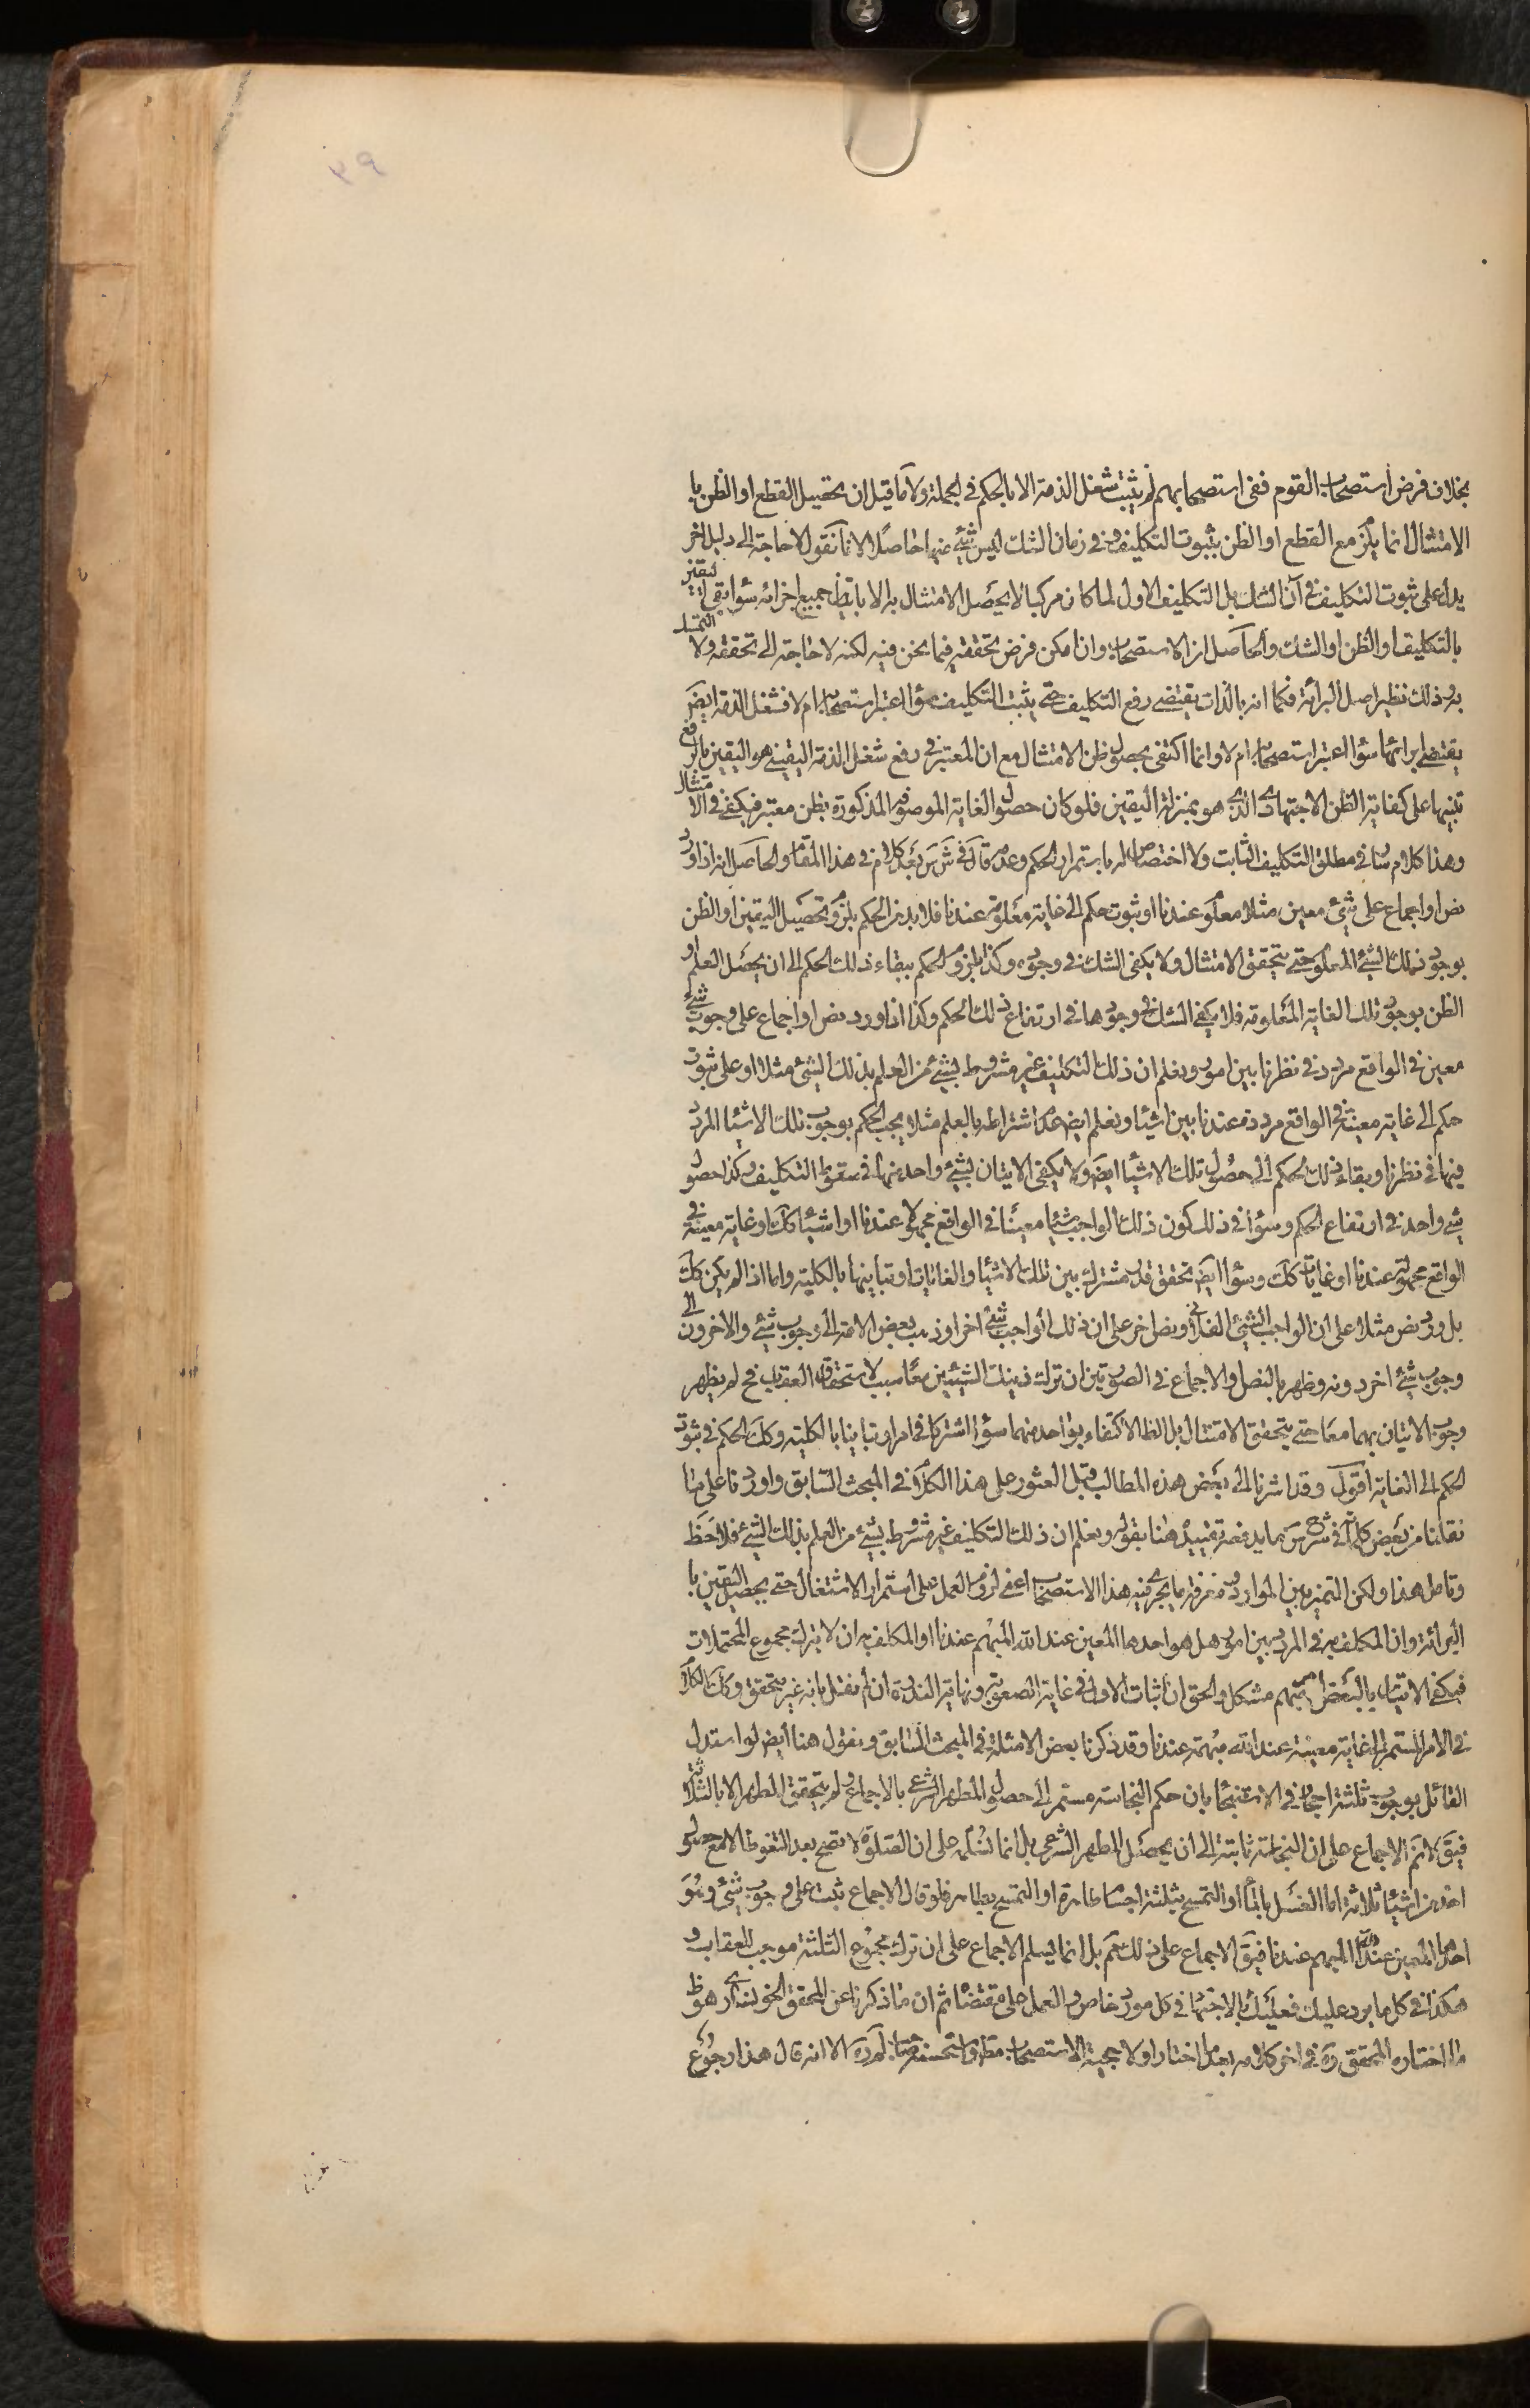 بخلاف فرض استصحاب القوم ففى استصحابهم لم يثبت شغل الذمة الا بالحكم فى الجملة ولا ما قيل ان تحصيل القطع او الظن با
الامتثال انما يلزم مع القطع او الظن بثبوت التكليف وفى زمان الشك ليس شئ منهما حاصلا لانا نقول لا حاجة الى دليل اخر
يدل على ثبوت التكليف فى آن الشك بل التكليف الاول لما كان مركبا لا يحصل الامتثال به الا باتيان جميع اجزائه سواء بقى اليقين
بالتكليف او الظن او الشك والحاصل ان الاستصحاب وان امكن فرض تحققه فيما نحن فيه لكنه لا حاجة الى تحققه ولا التمسك
به وذلك نظير اصل البرائة فكما انه بالذات يقتضى رفع التكليف حتى يثبت التكليف سواء اعتبر استصحابها ام لا فشغل الذمة ايضا
يقتضى ابرائها سواء اعتبر استصحابها ام لا وانما اكتفى بحصول ظن الامتثال مع ان المعتبر فى رفع شغل الذمة اليقينى هو اليقين بالرفع
تنبيها على كفاية الظن الاجتهادى الذى هو بمنزلة اليقين فلو كان حصول الغاية الموصوفة المذكورة بظن معتبر فيكفى فى الامتثال
وهذا كلام سار فى مطلق التكليف الثابت ولا اختصاص له باستمرار الحكم وعدمه قال فى شرس بعد كلام فى هذا المقام والحاصل انه اذا ورد
نص او اجماع على شئ معين مثلا معلوم عندنا او ثبوت حكم الى غاية معلومة عندنا فلا بد من الحكم بلزوم تحصيل اليقين او الظن
بوجود ذلك الشئ المعلوم حتى يتحقق الامتثال ولا يكفى الشك فى وجوده وكذا يلزم الحكم ببقاء ذلك الحكم الى ان يحصل العلم او
الظن بوجود تلك الغاية المعلومة فلا يكفى الشك فى وجودها فى ارتفاع ذلك الحكم وكذا اذا ورد نص او اجماع على وجوب شئ
معين فى الواقع مردد فى نظرنا بين امور ويعلم ان ذلك التكليف غير مشروط بشئ من العلم بذلك الشئ مثلا او على ثبوت
حكم الى غاية معينة فى الواقع مرددة عندنا بين اشياء ويعلم ايضا عدم اشتراطه بالعلم مثلا يجب الحكم بوجوب تلك الاشياء المردد
فيها فى نظرنا وبقاء ذلك الحكم الى حصول تلك الاشياء ايضا ولا يكفى الاتيان بشئ واحد منها فى سقوط التكليف وكذا حصول
شئ واحد فى ارتفاع الحكم وسواء فى ذلك كون ذلك الواجب شيئا معينا فى الواقع مجهولا عندنا او اشياء كك او غاية معينة فى
الواقع مجهولة عندنا او غايات كك وسواء ايضا تحقق قدر مشترك بين تلك الاشياء والغايات او تباينها بالكلية واما اذا لم يكن كك
بل ورد نص مثلا على ان الواجب الشئ الفلانى ونص اخر على ان ذلك الواجب شئ اخر او ذهب بعض الامة الى وجوب شئ والاخرون الى
وجوب شئ اخر دونه وظهر بالنص والاجماع فى الصورتين ان ترك ذينك الشيئين معا سبب لاستحقاق العقاب فح لم يظهر
وجوب الاتيان بهما معا حتى يتحقق الامتثال بل الظ الاكتفاء بواحد منهما سواء اشتركا فى امر او تباينا بالكلية وكك الحكم فى ثبوت
الحكم الى الغاية اقول وقد اشرنا الى بعض هذه المطالب قبل العثور على هذا الكلام فى المبحث السابق واوردنا على ما
نقلنا من بعض كلماته فى شرح س بما يدفعه تقييده هنا بقوله ويعلم ان ذلك التكليف غير مشروط بشئ من العلم بذلك الشئ فلاحظ
وتامل هذا ولكن التميز بين الموارد ومعرفة ما يجرى فيه هذا الاستصحاب اعنى لزوم العمل على استمرار الاشتغال حتى يحصل اليقين با
البرائة وان المكلف به فى المردد بين امور هل هو احدها المعين عند الله المبهم عندنا او المكلف به ان لا يترك مجموع المحتملات
فيكفى الاتيان بالبعض مشكل والحق ان اثبات الاول فى غاية الصعوبة ونهاية الندرة ان لم نقل بانه غير متحقق وكك الكلام
فى الامر المستمر الى غاية معينة عند الله مبهمة عندنا وقد ذكرنا بعض الامثلة فى المبحث السابق ونقول هنا ايضا لو استدل
القائل بوجوب ثلثة احجار فى الاستنجاء بان حكم النجاسة مستمر الى حصول المطهر الشرعى بالاجماع ولم يتحقق المطهر الا بالثلاثة
فيق لا نم الاجماع على ان النجاسة ثابتة الى ان يحصل المطهر الشرعى بل انما نسلمه على ان الصلوة لا تصح بعد التغوط الا مع حصول
احد من اشياء ثلاثة اما الغسل بالماء او التمسح بثلثة اجسام طاهرة او التمسح بطاهر فلو قال الاجماع ثبت على وجوب شئ وهو
احدها المعين عند الله المبهم عندنا فيق الاجماع على ذلك مم بل انما يسلم الاجماع على ان ترك مجموع الثلثة موجب للعقاب و
هكذا فى كل ما يرد عليك فعليك بالاجتهاد فى كل مورد خاص والعمل على مقتضاه ثم ان ما ذكرنا عن المحقق الخونسارى هو ظ
ما اختاره المحقق ره فى اخر كلامه بعد ما اختار اولا حجية الاستصحاب مطلقا واستحسنه صاحب لم ره الا انه قال هذا رجوع